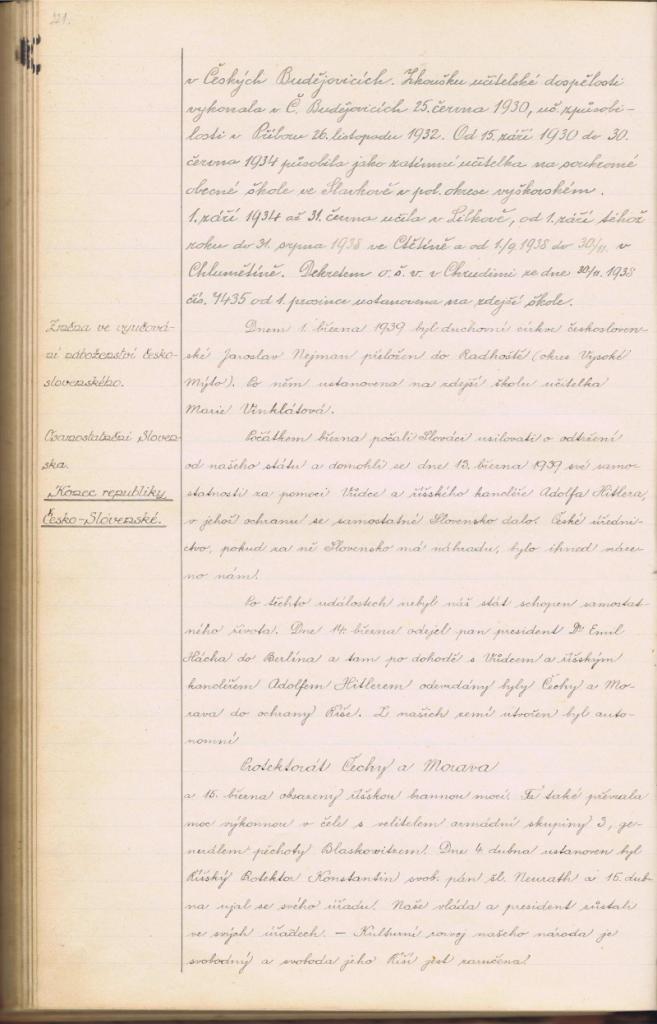 21.
v Českých Budějovicích. Zkoušku učitelské dospělosti
vykonala v Č. Budějovicích 25. června 1930, uč. způsobi-
losti v Příboru 26. listopadu 1932. Od 15. září 1930 do 30.
června 1934 působila jako zatímní učitelka na soukromé
obecné škole ve Slavkově v pol. okrese vyškovském.
1. září 1934 až 31. června učila v Lilkově, od 1. září téhož
roku do 31. srpna 1938 ve Ctětíně a od 1./9. 1938 do 30/11. v
Chlumětíně. Dekretem o. š. v. v Chrudimi ze dne 30/11. 1938
čís. 7435 od 1. prosince ustanovena na zdejší škole.
Změna ve vyučová-
ní náboženství česko-
slovenského.
Dnem 1. března 1939 byl duchovní církve českosloven-
ské Jaroslav Nejman přeložen do Radhoště (okres Vysoké
Mýto). Po něm ustanovena na zdejší školu učitelka
Marie Vinklátová.
Osamostatnění Sloven-
ska.
Konec republiky
Česko-Slovenské.
Počátkem března počali Slováci usilovati o odtržení
od našeho státu a domohli se dne 13. března 1939 své samo-
statnosti za pomoci Vůdce a říšského kancléře Adolfa Hitlera,
v jehož ochranu se samostatné Slovensko dalo. České úřednic-
tvo, pokud za ně Slovensko má náhradu, bylo ihned vráce-
no nám.
Po těchto událostech nebyl náš stát schopen samostat-
ného života. Dne 14. března odejel pan president Dr Emil
Hácha do Berlína a tam po dohodě s Vůdcem a říšským
kancléřem Adolfem Hitlerem odevzdány byly Čechy a Mo-
rava do ochrany Říše. Z našich zemí utvořen byl auto-
nomní
Protektorát Čechy a Morava
a 15. března obsazený říšskou brannou mocí. Ta také převzala
moc výkonnou v čele s velitelem armádní skupiny 3, ge-
nerálem pěchoty Blaskowitzem. Dne 4. dubna ustanoven byl
Říšský Protektor Konstantin svob. pán šl. Neurath a 15. dub-
na ujal se svého úřadu. Naše vláda a president zůstali
ve svých úřadech. – Kulturní rozvoj našeho národa je
svobodný a svoboda jeho Říší jest zaručena!